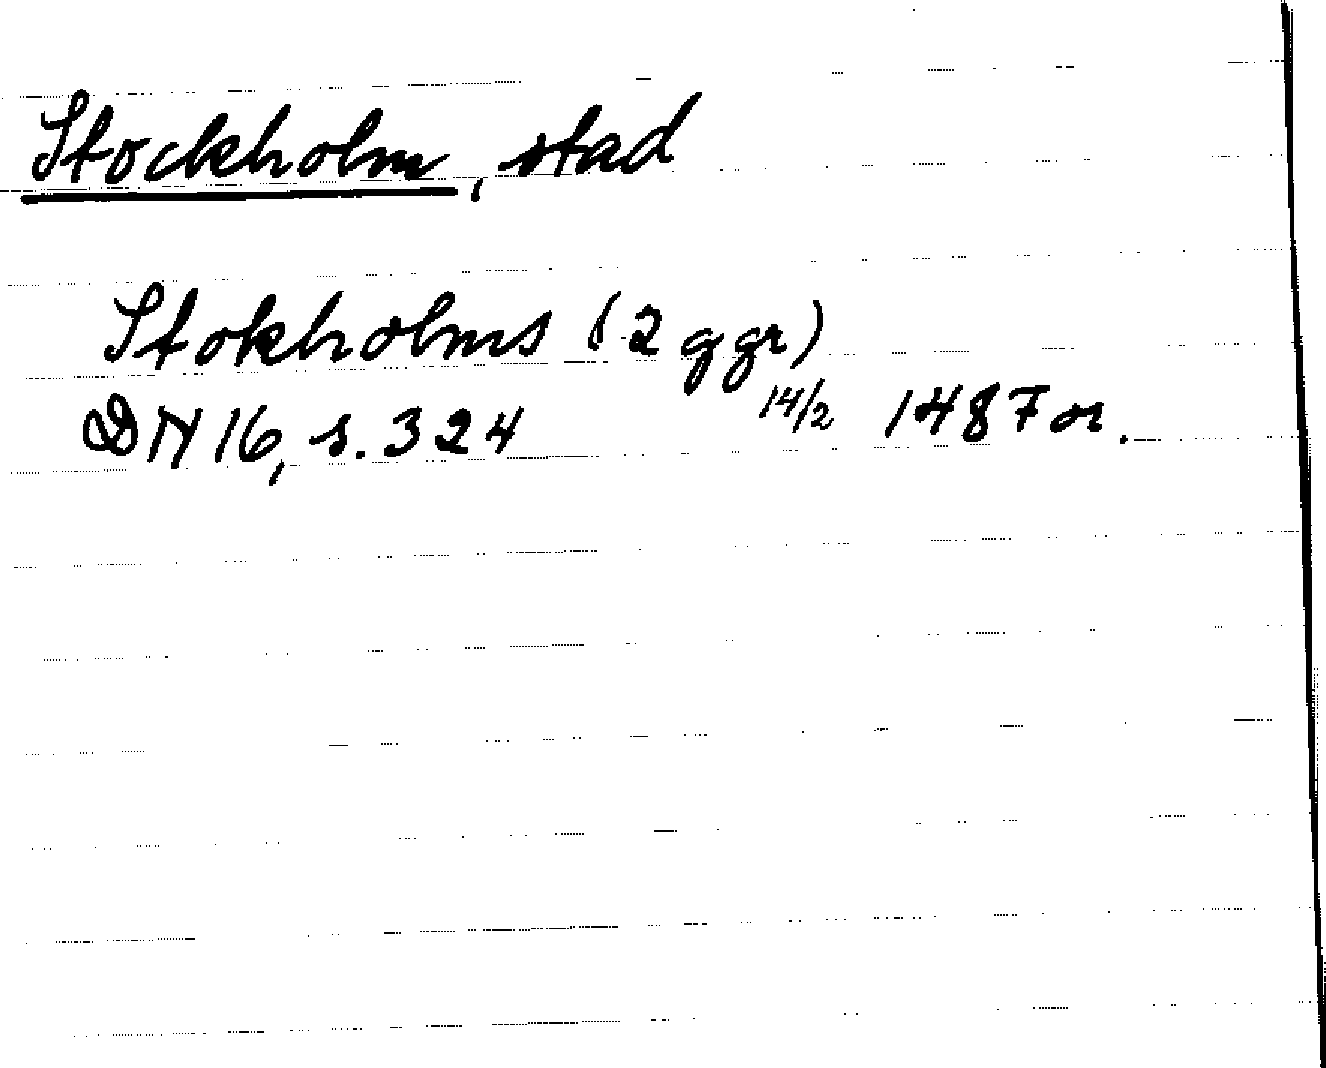 Stockholm, stad
Stokholms (2 ggr)
DN 16, s. 324 14/2 1487 or.